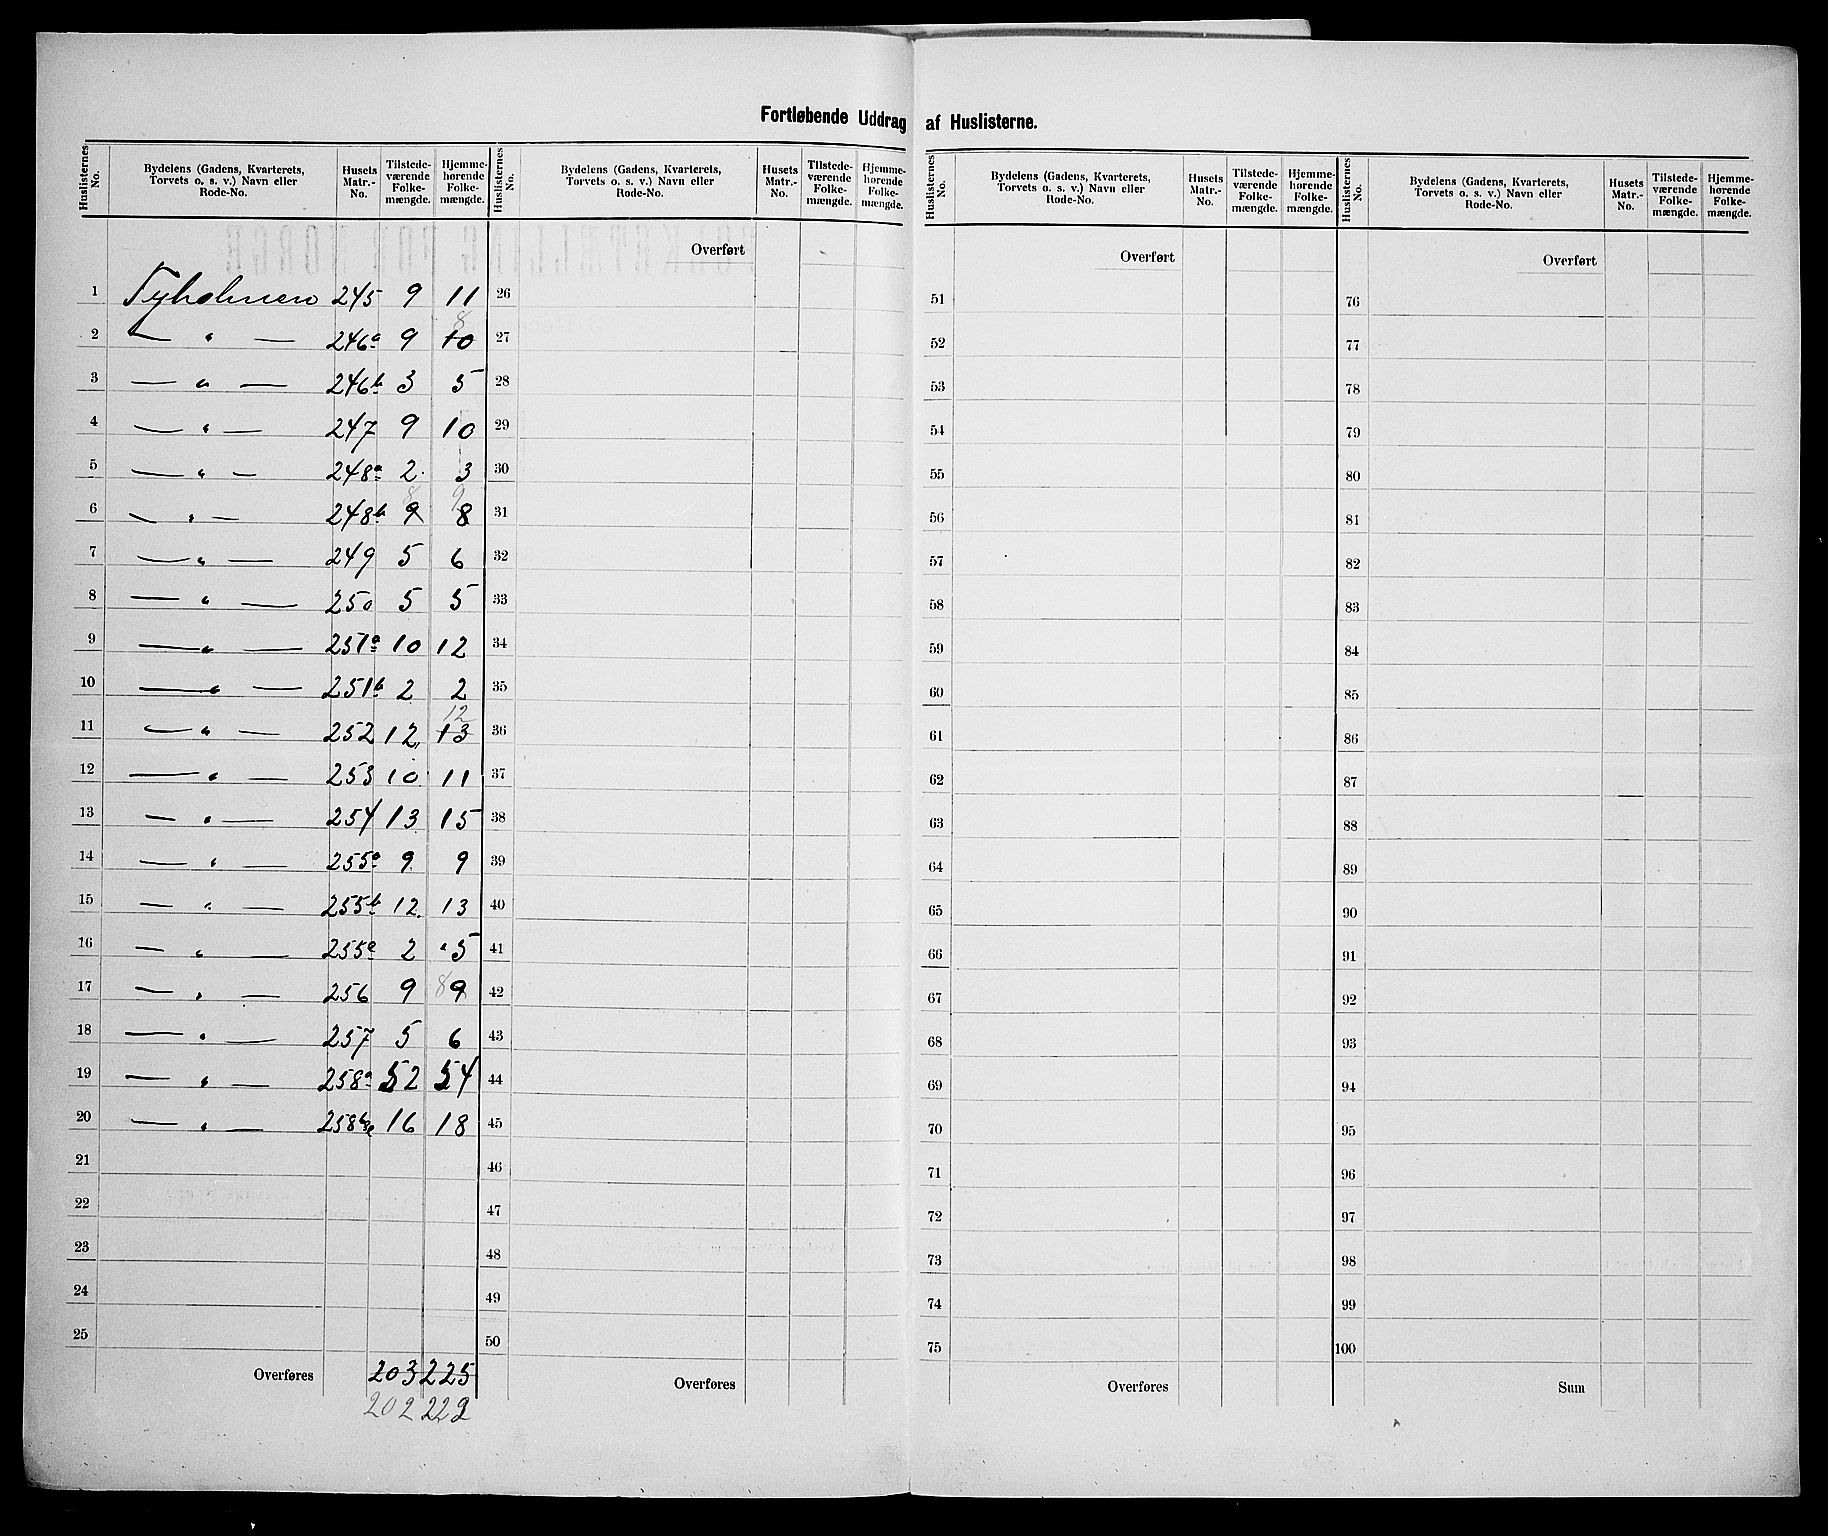 Fortløbende Uddrag af Huslisterne.
Huslisternes No. Bydelens (Gadens, Kvarterets, Torvets o. s. v.) Navn eller Rode-No. Husets Matr.-No. Tilstede-værende Folke-mængde. Hjemme-hørende Folke-mængde.
Huslisternes No. Bydelens (Gadens, Kvarterets, Torvets o. s. v.) Navn eller Rode-No. Husets Matr.-No. Tilstede-værende Folke-mængde. Hjemme-hørende Folke-mængde.
Huslisternes No. Bydelens (Gadens, Kvarterets, Torvets o. s. v.) Navn eller Rode-No. Husets Matr.-No. Tilstede-værende Folke-mængde. Hjemme-hørende Folke-mængde.
Huslisternes No. Bydelens (Gadens, Kvarterets, Torvets o. s. v.) Navn eller Rode-No. Husets Matr.-No. Tilstede-værende Folke-mængde. Hjemme-hørende Folke-mængde.
1 Tyholmen 245 9 11
2 — " — 246a 9 10 8
3 — " — 246b 3 5
4 — " — 247 9 10
5 — " — 248a 2 3
6 — " — 248b 9 8 8 9
7 — " — 249 5 6
8 — " — 250 5 5
9 — " — 251a 10 12
10 — " — 251b 2 2
11 — " — 252 12 13 12
12 — " — 253 10 11
13 — " — 254 13 15
14 — " — 255a 9 9
15 — " — 255b 12 13
16 — " — 255e 2 5
17 — " — 256 9 8 9
18 — " — 257 5 6
19 — " — 258a 52 54
20 — " — 258b 16 18
21
22
23
24
25
Overføres 203 225
202 222
Overført
26
27
28
29
30
31
32
33
34
35
36
37
38
39
40
41
42
43
44
45
46
47
48
49
50
Overføres
Overført
51
52
53
54
55
56
57
58
59
60
61
62
63
64
65
66
67
68
69
70
71
72
73
74
75
Overføres
Overført
76
77
78
79
80
81
82
83
84
85
86
87
88
89
90
91
92
93
94
95
96
97
98
99
100
Sum